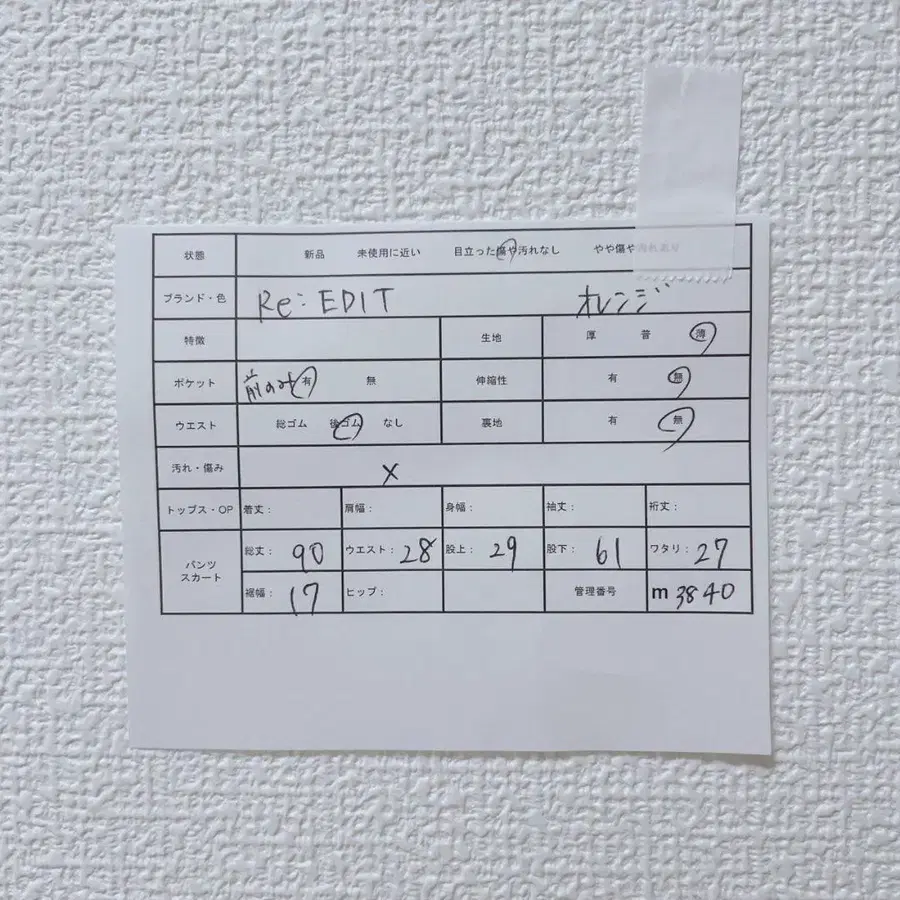 状態 新品 未使用に近い 目立った傷や汚れなし やや傷や汚れあり
ブランド・色 Re:EDIT オレンジ
特徴 生地 厚 普 薄
ポケット 前のみ 有 無 伸縮性 有 無
ウエスト 総ゴム 後ゴム なし 裏地 有 無
汚れ・傷み X
トップス・OP 着丈: 肩幅: 身幅: 袖丈: 裄丈:
パンツ スカート 総丈: 90 ウエスト: 28 股上: 29 股下: 61 ワタリ: 27
裾幅: 17 ヒップ: 管理番号 m 3840